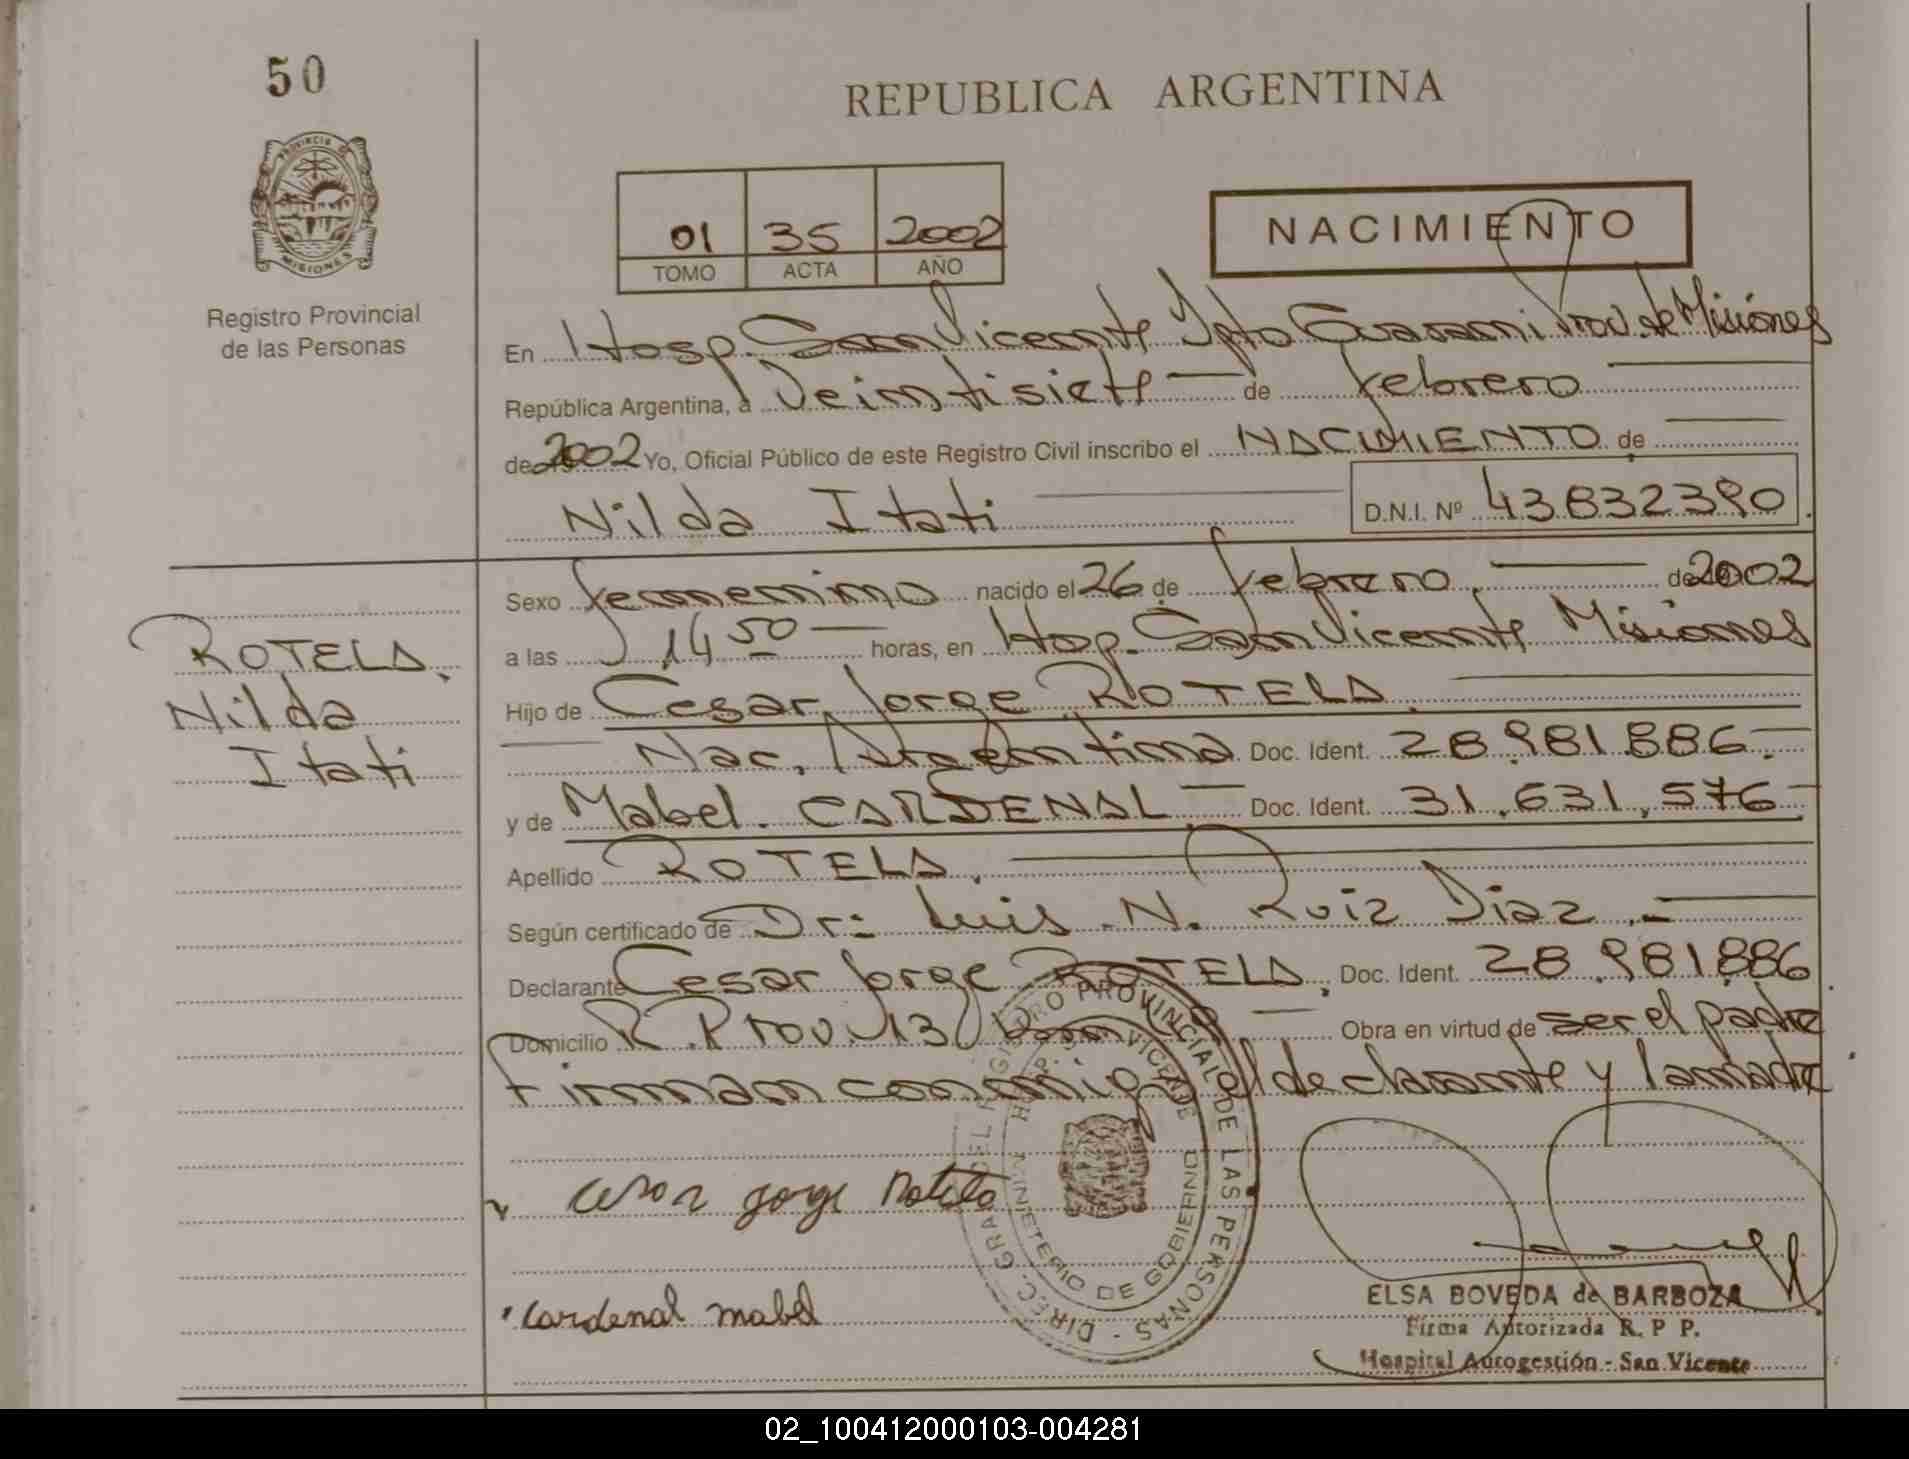 50
REPUBLICA ARGENTINA
PROVINCIA DE
MISIONES
Registro Provincial
de las Personas
01 35 2002
TOMO ACTA AÑO
NACIMIENTO
En Hosp. San Vicente Dpto Guarani Prov. de Misiones
República Argentina, a Veintisiete de febrero
de 2002 Yo, Oficial Público de este Registro Civil inscribo el NACIMIENTO de
Nilda Itati D.N.I. Nº 43832390
Sexo femenino nacido el 26 de febrero de 2002
ROTELA.
Nilda
Itati
a las 14 50 horas, en Hosp. San Vicente Misiones
Hijo de Cesar Jorge ROTELA.
Nac. Argentina Doc. Ident. 28.981.886.
y de Mabel. CARDENAL Doc. Ident. 31.631.576
Apellido ROTELA.
Según certificado de Dr: Luis N. Ruiz Diaz.
Declarante Cesar Jorge ROTELA. Doc. Ident. 28.981.886
Domicilio R. Prov. 13 San Vicente Obra en virtud de ser el padre
Firman conmigo el declarante y la madre
Cesar Jorge Rotela
Cardenal mabel
DIREC. GRAL. DEL REGISTRO PROVINCIAL DE LAS PERSONAS -
HOSP. SAN VICENTE
MINISTERIO DE GOBIERNO
ELSA BOVEDA de BARBOZA
Firma Autorizada R. P P.
Hospital Autogestión - San Vicente
02_100412000103-004281